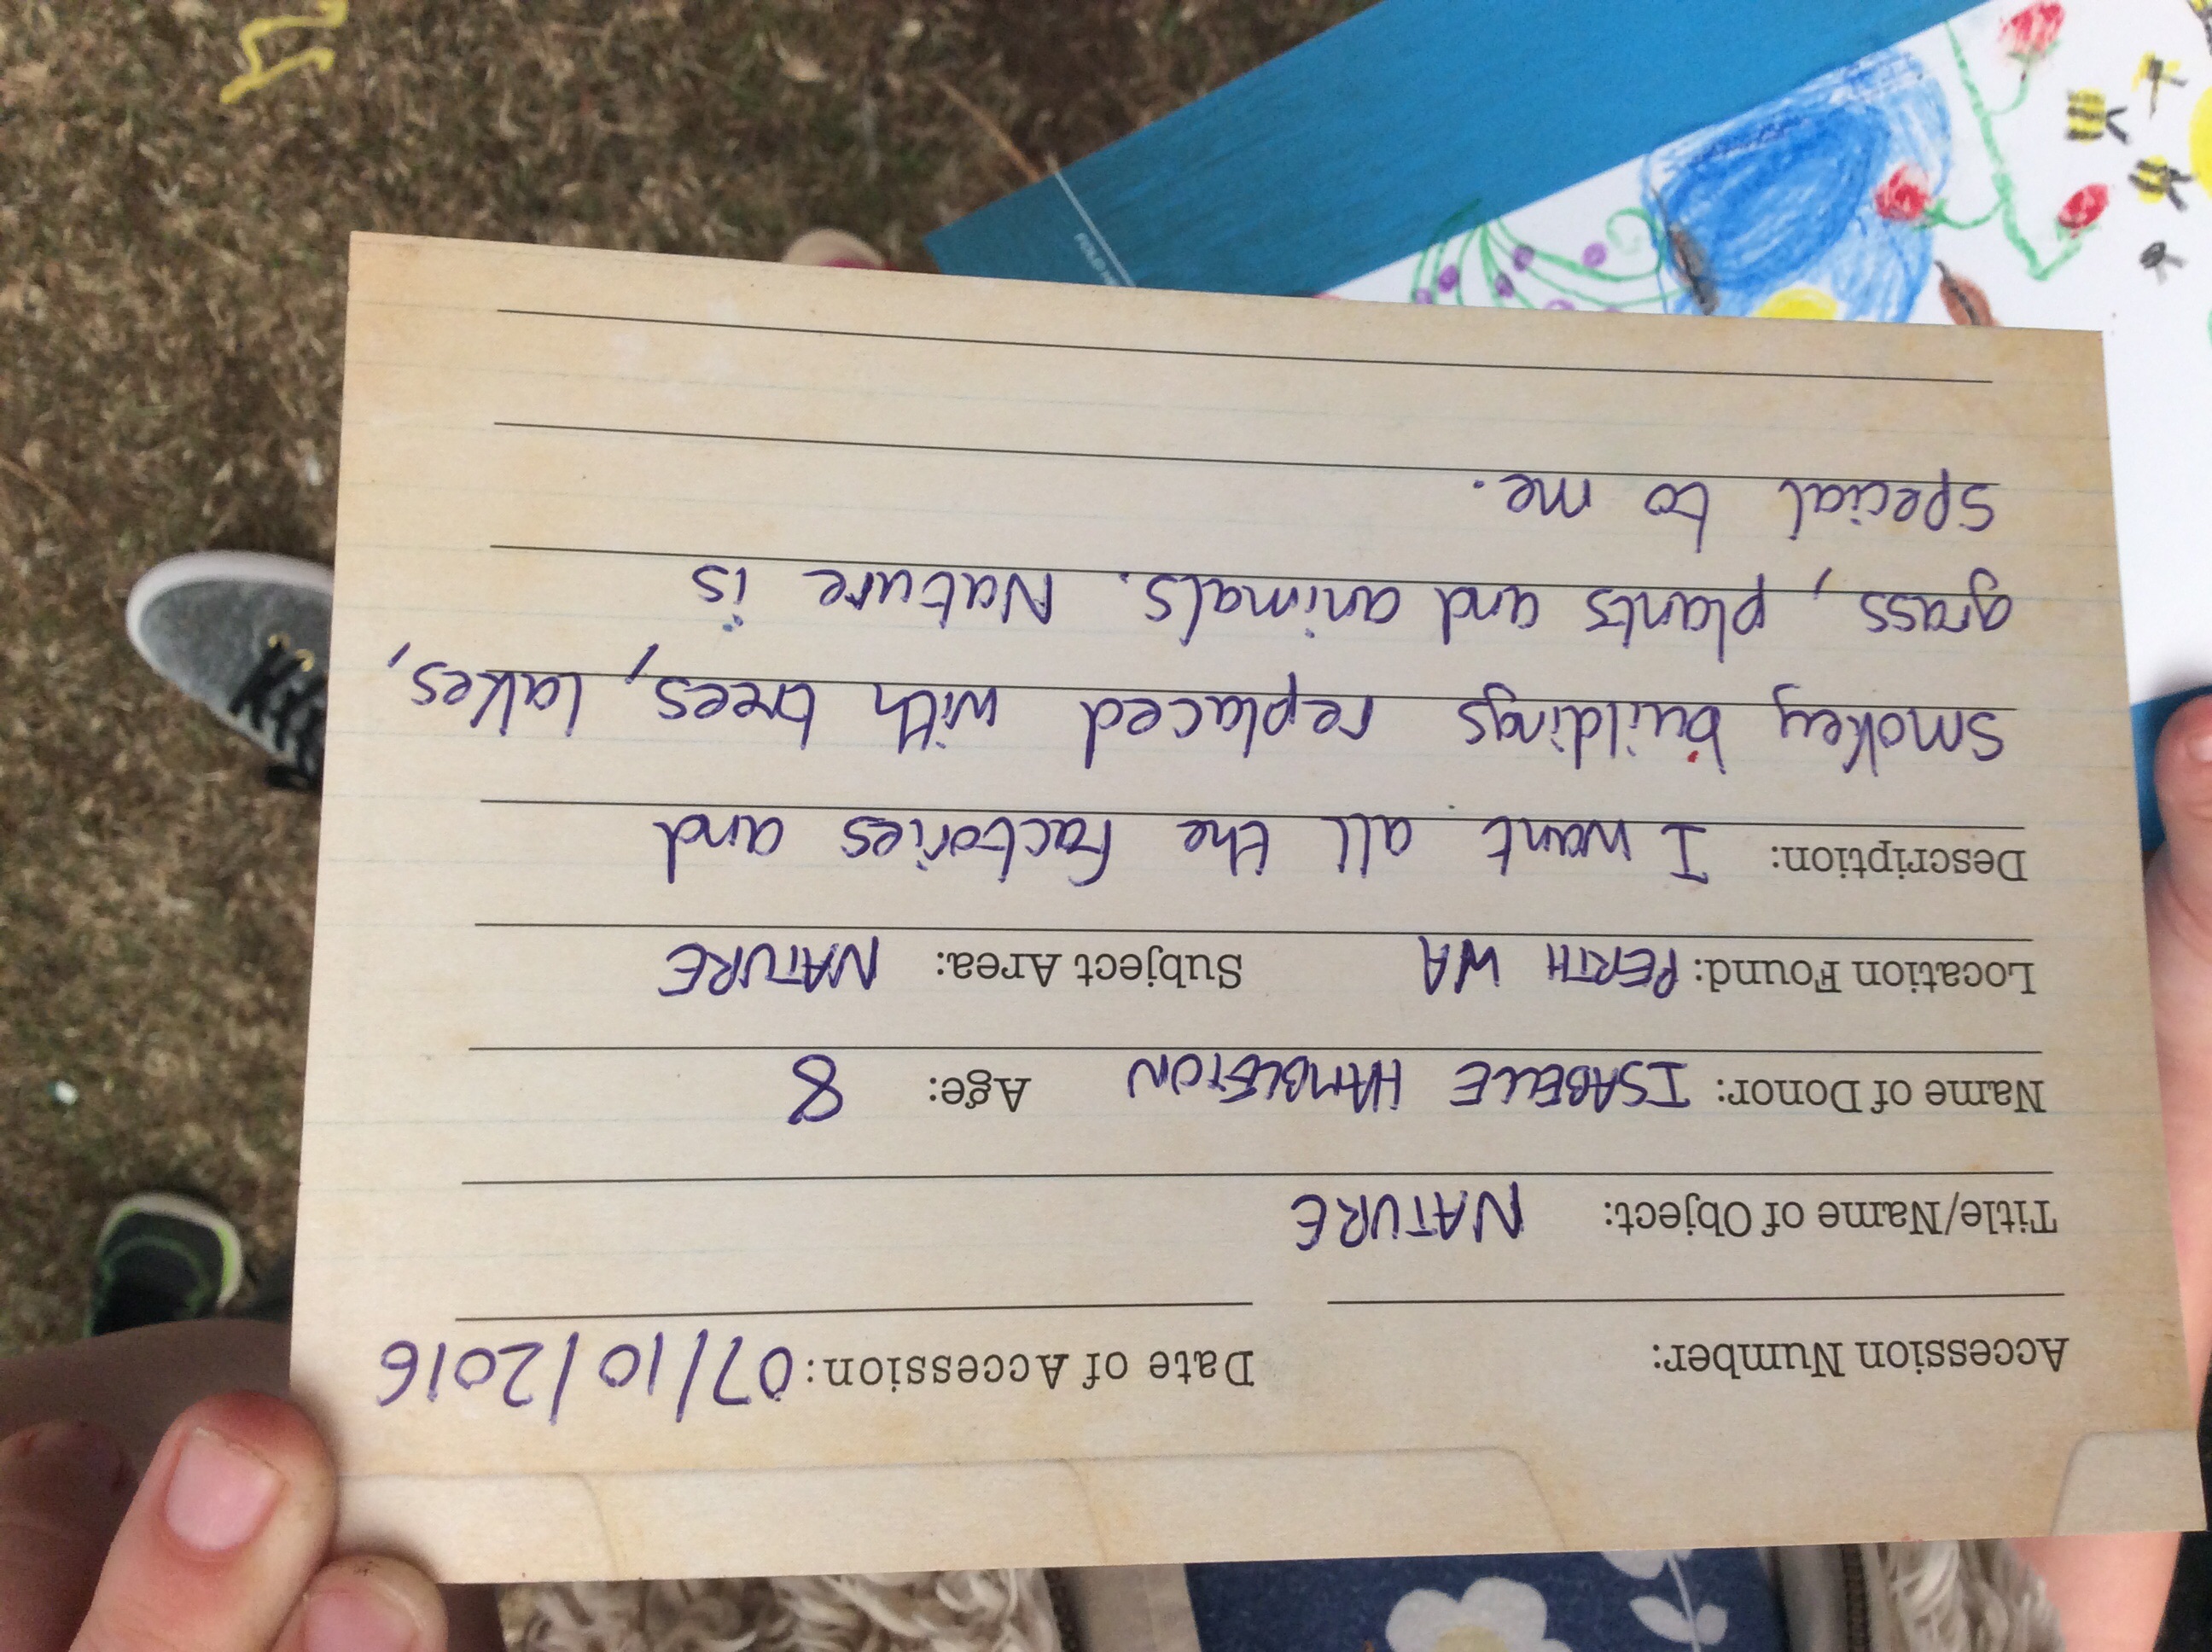 Accession Number: Date of Accession: 07/10/2016
Title/Name of Object: NATURE
Name of Donor: ISABELLE HAMBLETON Age: 8
Location Found: PERTH WA Subject Area: NATURE
Description: I want all the factories and
smokey buildings replaced with trees, lakes,
grass, plants and animals. Nature is
special to me.